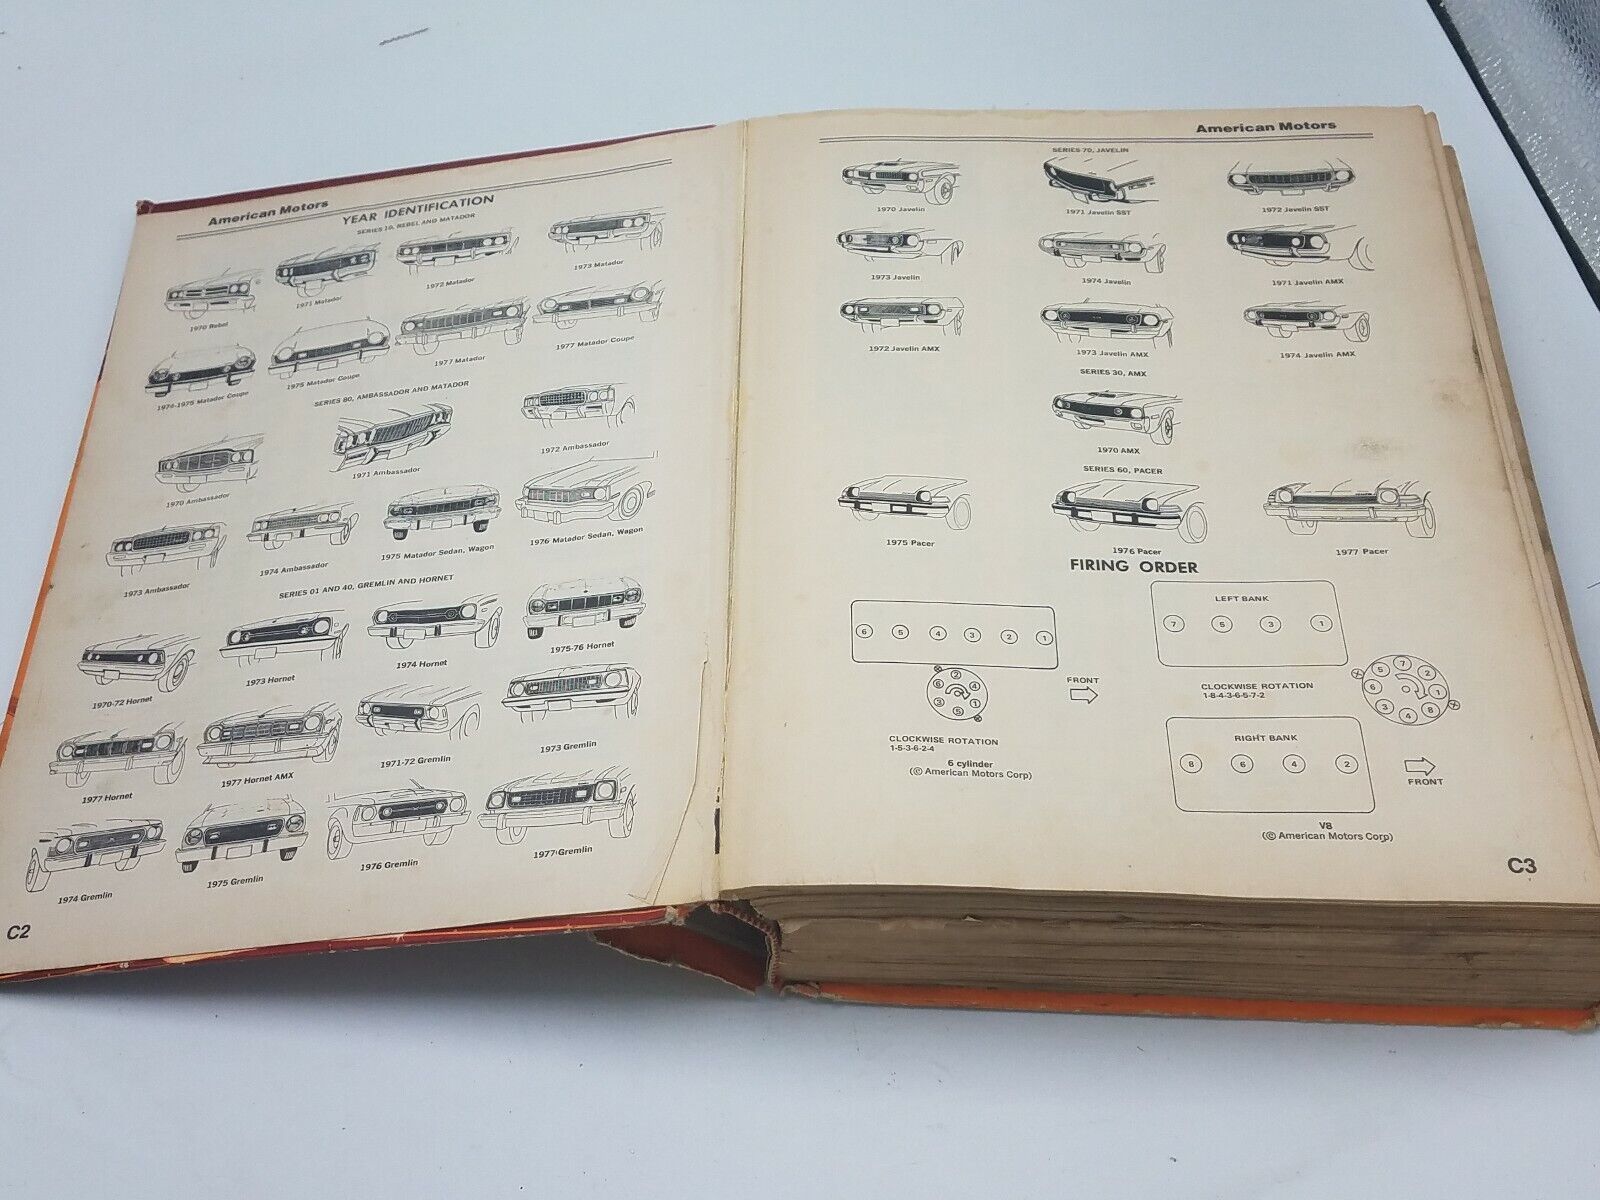 American Motors
YEAR IDENTIFICATION
SERIES 10, REBEL AND MATADOR
1970 Rebel
1971 Matador
1972 Matador
1973 Matador
1974-1975 Matador Coupe
1975 Matador Coupe
1977 Matador
1977 Matador Coupe
SERIES 80, AMBASSADOR AND MATADOR
1970 Ambassador
1971 Ambassador
1972 Ambassador
1973 Ambassador
1974 Ambassador
1975 Matador Sedan, Wagon
1976 Matador Sedan, Wagon
SERIES 01 AND 40, GREMLIN AND HORNET
1970-72 Hornet
1973 Hornet
1974 Hornet
1975-76 Hornet
1977 Hornet
1977 Hornet AMX
1971-72 Gremlin
1973 Gremlin
1974 Gremlin
1975 Gremlin
1976 Gremlin
1977 Gremlin
C2
American Motors
SERIES 70, JAVELIN
1970 Javelin
1971 Javelin SST
1972 Javelin SST
1973 Javelin
1974 Javelin
1971 Javelin AMX
1972 Javelin AMX
1973 Javelin AMX
1974 Javelin AMX
SERIES 30, AMX
1970 AMX
SERIES 60, PACER
1975 Pacer
1976 Pacer
1977 Pacer
FIRING ORDER
6 5 4 3 2 1
2
4
1
5
3
6
FRONT
CLOCKWISE ROTATION
1-5-3-6-2-4
6 cylinder
(© American Motors Corp)
LEFT BANK
7 5 3 1
CLOCKWISE ROTATION
1-8-4-3-6-5-7-2
5
7
2
1
8
4
3
6
RIGHT BANK
8 6 4 2
FRONT
V8
(© American Motors Corp)
C3